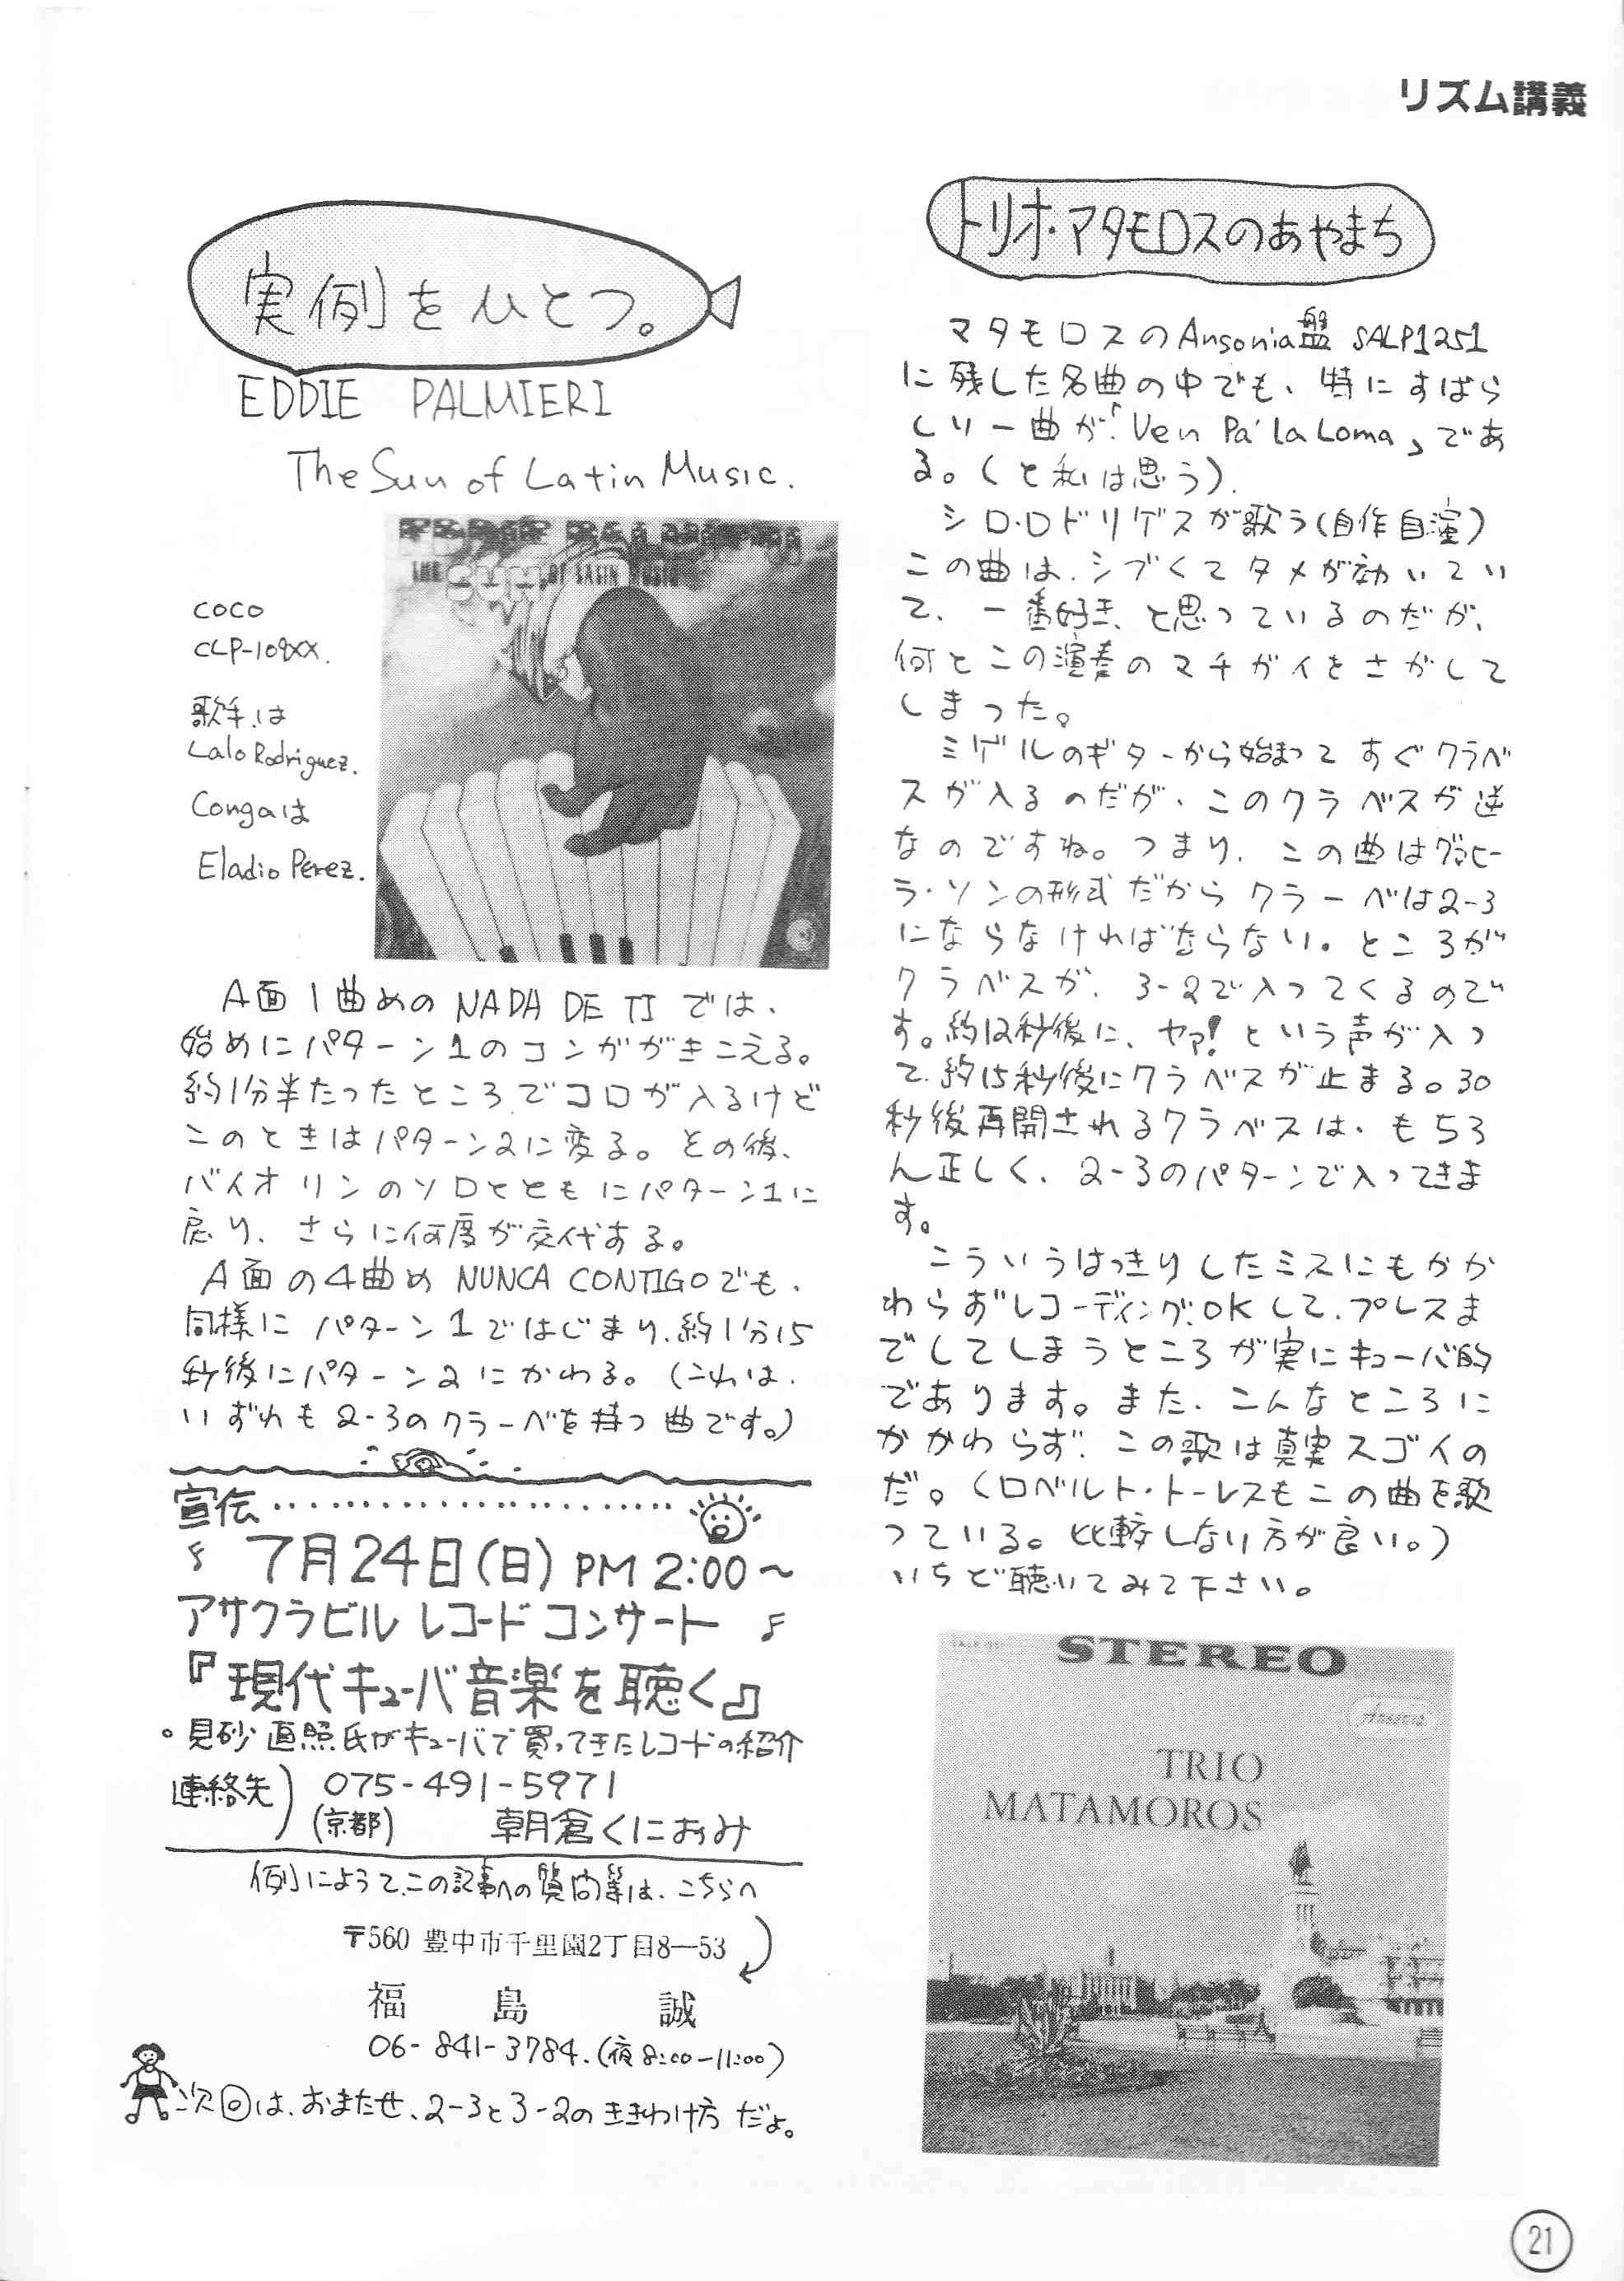 リズム講義
実例をひとつ。
EDDIE PALMIERI
The Sun of Latin Music.
THE SUN OF LATIN MUSIC
COCO
CLP-109XX.
歌手は
Lalo Rodriguez.
Congaは
Eladio Perez.
A面1曲めの NADA DE TI では、
始めにパターン1のコンガがきこえる。
約1分半たったところでコロが入るけど
このときはパターン2に変る。その後、
バイオリンのソロとともにパターン1に
戻り、さらに何度か交代する。
A面の4曲め NUNCA CONTIGOでも、
同様に パターン1ではじまり、約1分15
秒後にパターン2にかわる。(これは、
いずれも2-3のクラーベを持つ曲です。)
宣伝
7月24日(日) PM 2:00〜
アサクラビル レコード コンサート
『現代キューバ音楽を聴く』
。見砂 直照氏がキューバで買ってきたレコードの紹介
連絡先) 075-491-5971
(京都) 朝倉くにおみ
例によって、この記事への質問等は、こちらへ
〒560 豊中市千里園2丁目8—53
福島 誠
06-841-3784.(夜8:00-11:00)
次回は、おまたせ、2-3と3-2のききわけ方 だよ。
トリオ・マタモロスのあやまち
マタモロスのAnsonia盤 SALP1251
に残した名曲の中でも、特にすばら
しい一曲が「Ven Pa' la Loma」であ
る。(と私は思う).
シロ・ロドリゲスが歌う(自作自演)
この曲は、シブくてタメが効いてい
て、一番好き、と思っているのだが、
何とこの演奏のマチガイをさがして
しまった。
ミゲルのギターから始まって すぐクラベ
スが入るのだが、このクラベスが逆
なのですね。つまり、この曲はグァヒー
ラ・ソンの形式だから クラーベは2-3
にならなければならない。ところが
クラベスが、3-2で入ってくるので
す。約12秒後に、ヤァ! という声が入っ
て、約15秒後にクラベスが止まる。30
秒後再開されるクラベスは、もちろ
ん正しく、2-3のパターンで入ってきま
す。
こういうはっきりしたミスにもかか
わらずレコーディングOKして、プレスま
でしてしまうところが実にキューバ的
であります。また、こんなところに
かかわらず、この歌は真実スゴイの
だ。(ロベルト・トーレスもこの曲を歌
っている。比較しない方が良い。)
いちど聴いてみて下さい。
STEREO
Ansonia
TRIO
MATAMOROS
21